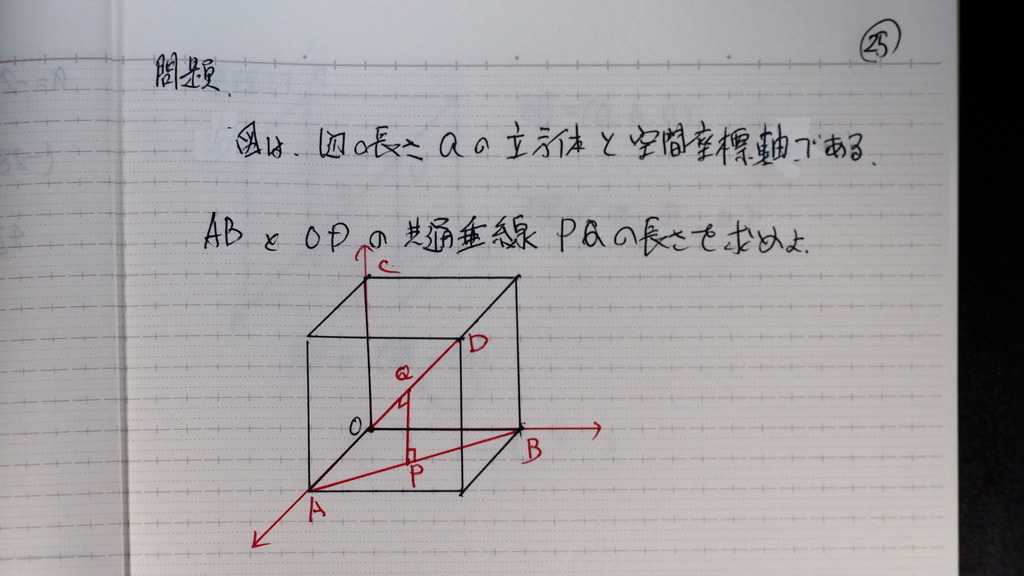 25
問題.
図は、辺の長さ a の立方体と空間座標軸である。
AB と OD の共通垂線 PQ の長さを求めよ.
C
D
Q
O
B
P
A